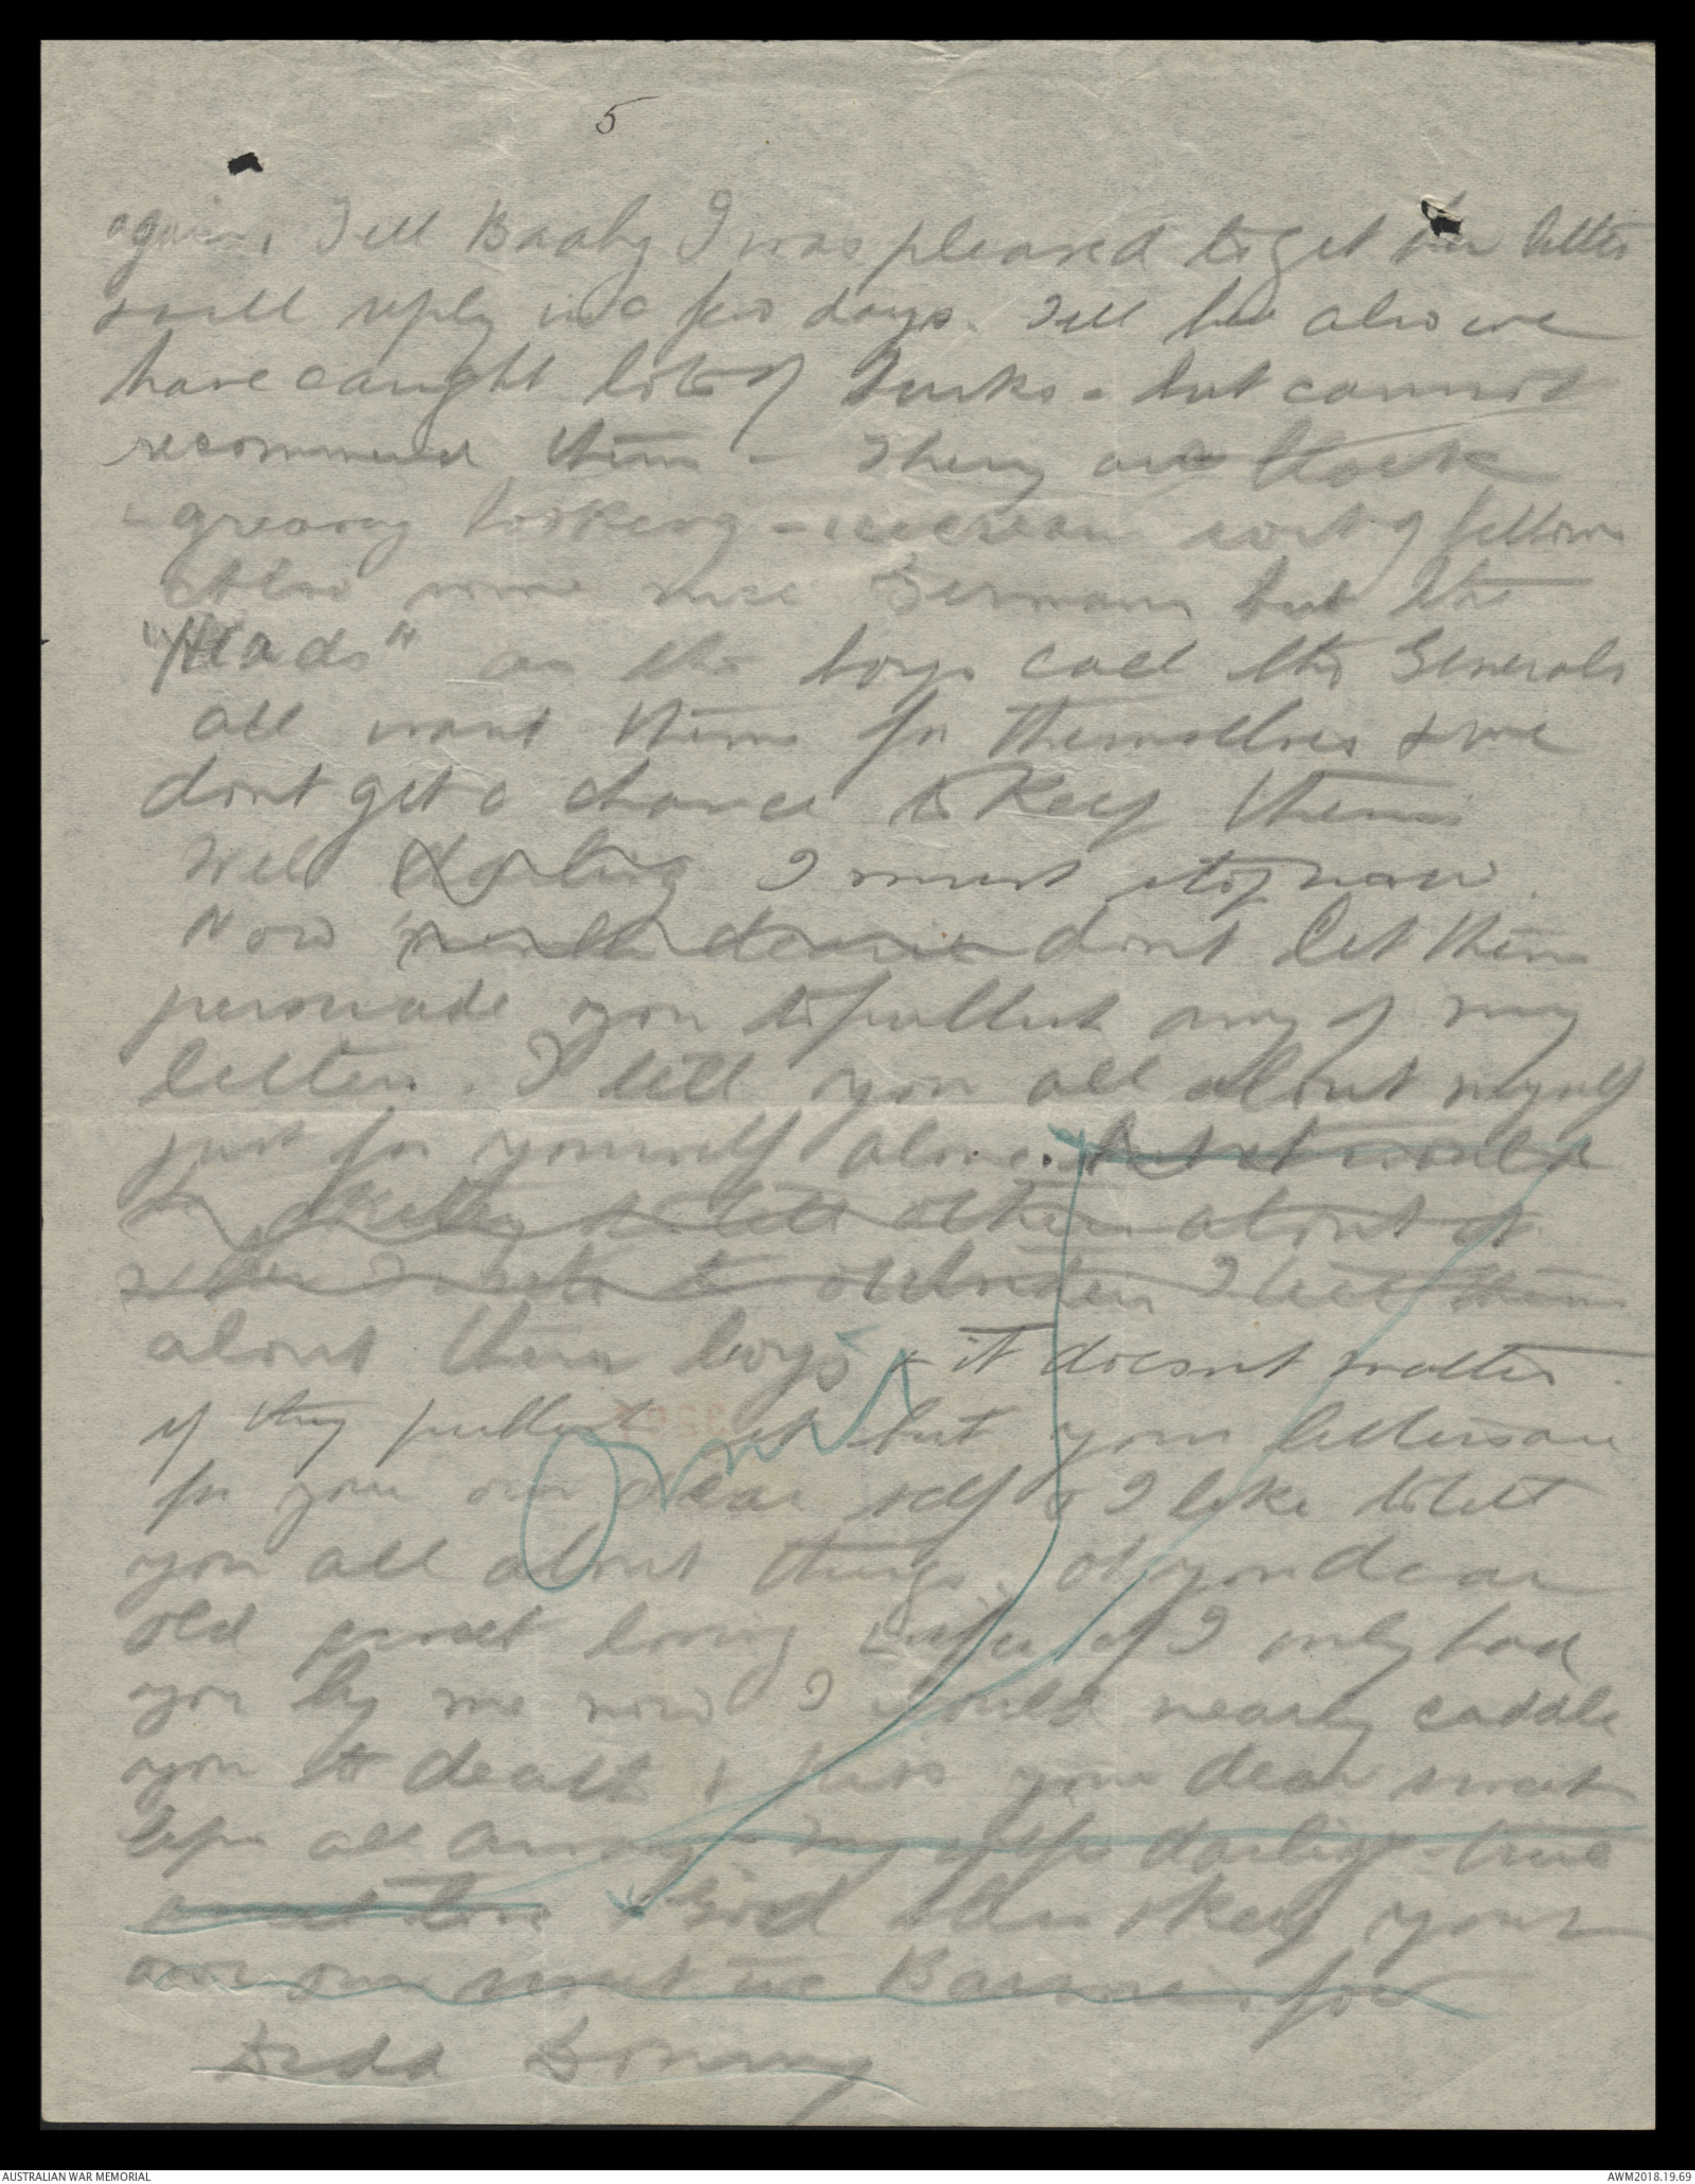 5
again, Tell Baaby I was pleased to get her letter
& will reply in a few days. Tell her also we
have caught lots of Turks - but cannot
recommend them - They are black
greasy looking - icecream sort of fellows
Also some nice Germans but the
"Heads" as the boys call the Generals
all want them for themselves & we
dont get a chance to keep them
Well darling I must stop now.
Now dont let them
persuade you to publish any of my
letters. I tell you all about myself
just for yourself alone. But it would
to tell others about it
outsiders I tell them
about their boys & it doesnt matter
if they publish it but your letters are
for your own dear self & I like to tell
you all about things. oh you dear
old sweet loving wife if I only had
you by me now I would nearly cuddle
you to death & kiss your dear sweet
lips all away - my darling - true
sweet love & God bless & keep you
own sweet wee for
Omit
AUSTRALIAN WAR MEMORIAL
AWM2018.19.69